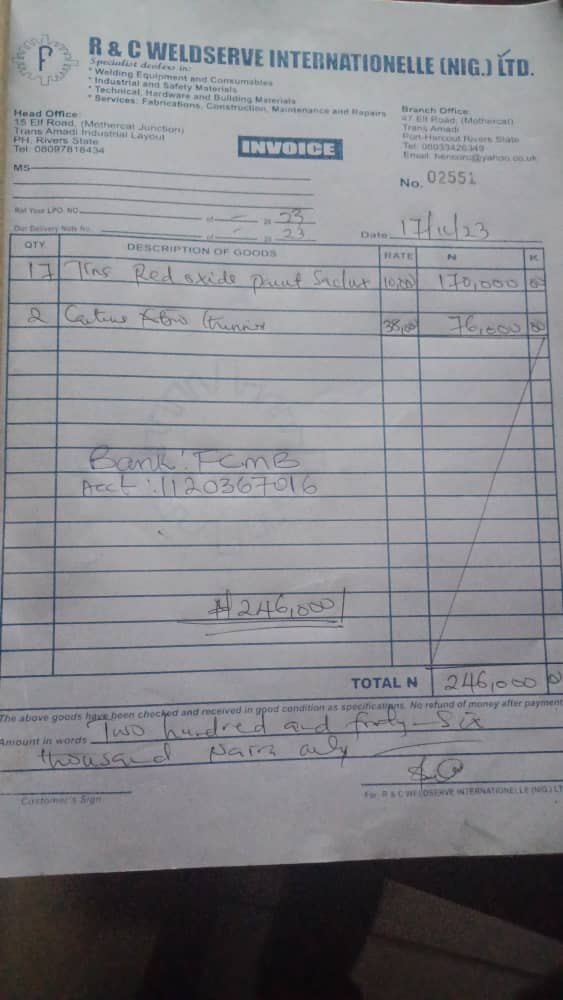 R & C WELDSERVE INTERNATIONELLE (NIG.) LTD.
Specialist dealers in:
* Welding Equipment and Consumables
* Industrial and Safety Materials
* Technical, Hardware and Building Materials
* Services: Fabrications, Construction, Maintenance and Repairs
Head Office:
15 Elf Road, (Mothercat Junction)
Trans Amadi Industrial Layout
PH. Rivers State
Tel: 08097818434
Branch Office:
47 Elf Road, (Mothercat)
Trans Amadi
Port-Harcourt Rivers State
Tel: 08033426349
INVOICE
MS
No. 02551
Ref Your LPO. NO. of - 20 23
Our Delivery Note No. of - 20 23
Date 17/10/23
QTY DESCRIPTION OF GOODS RATE N K
17 Tins Red oxide paint 170,000 00
2 38,00 76,000 00
Bank: FCMB
Acct: 1120367016
₦246,000
TOTAL N 246,000 00
The above goods have been checked and received in good condition as specifications. No refund of money after payment
Amount in words Two hundred and fourty-Six
thousand Naira only
Customer's Sign
For: R & C WELDSERVE INTERNATIONELLE (NIG.) LT